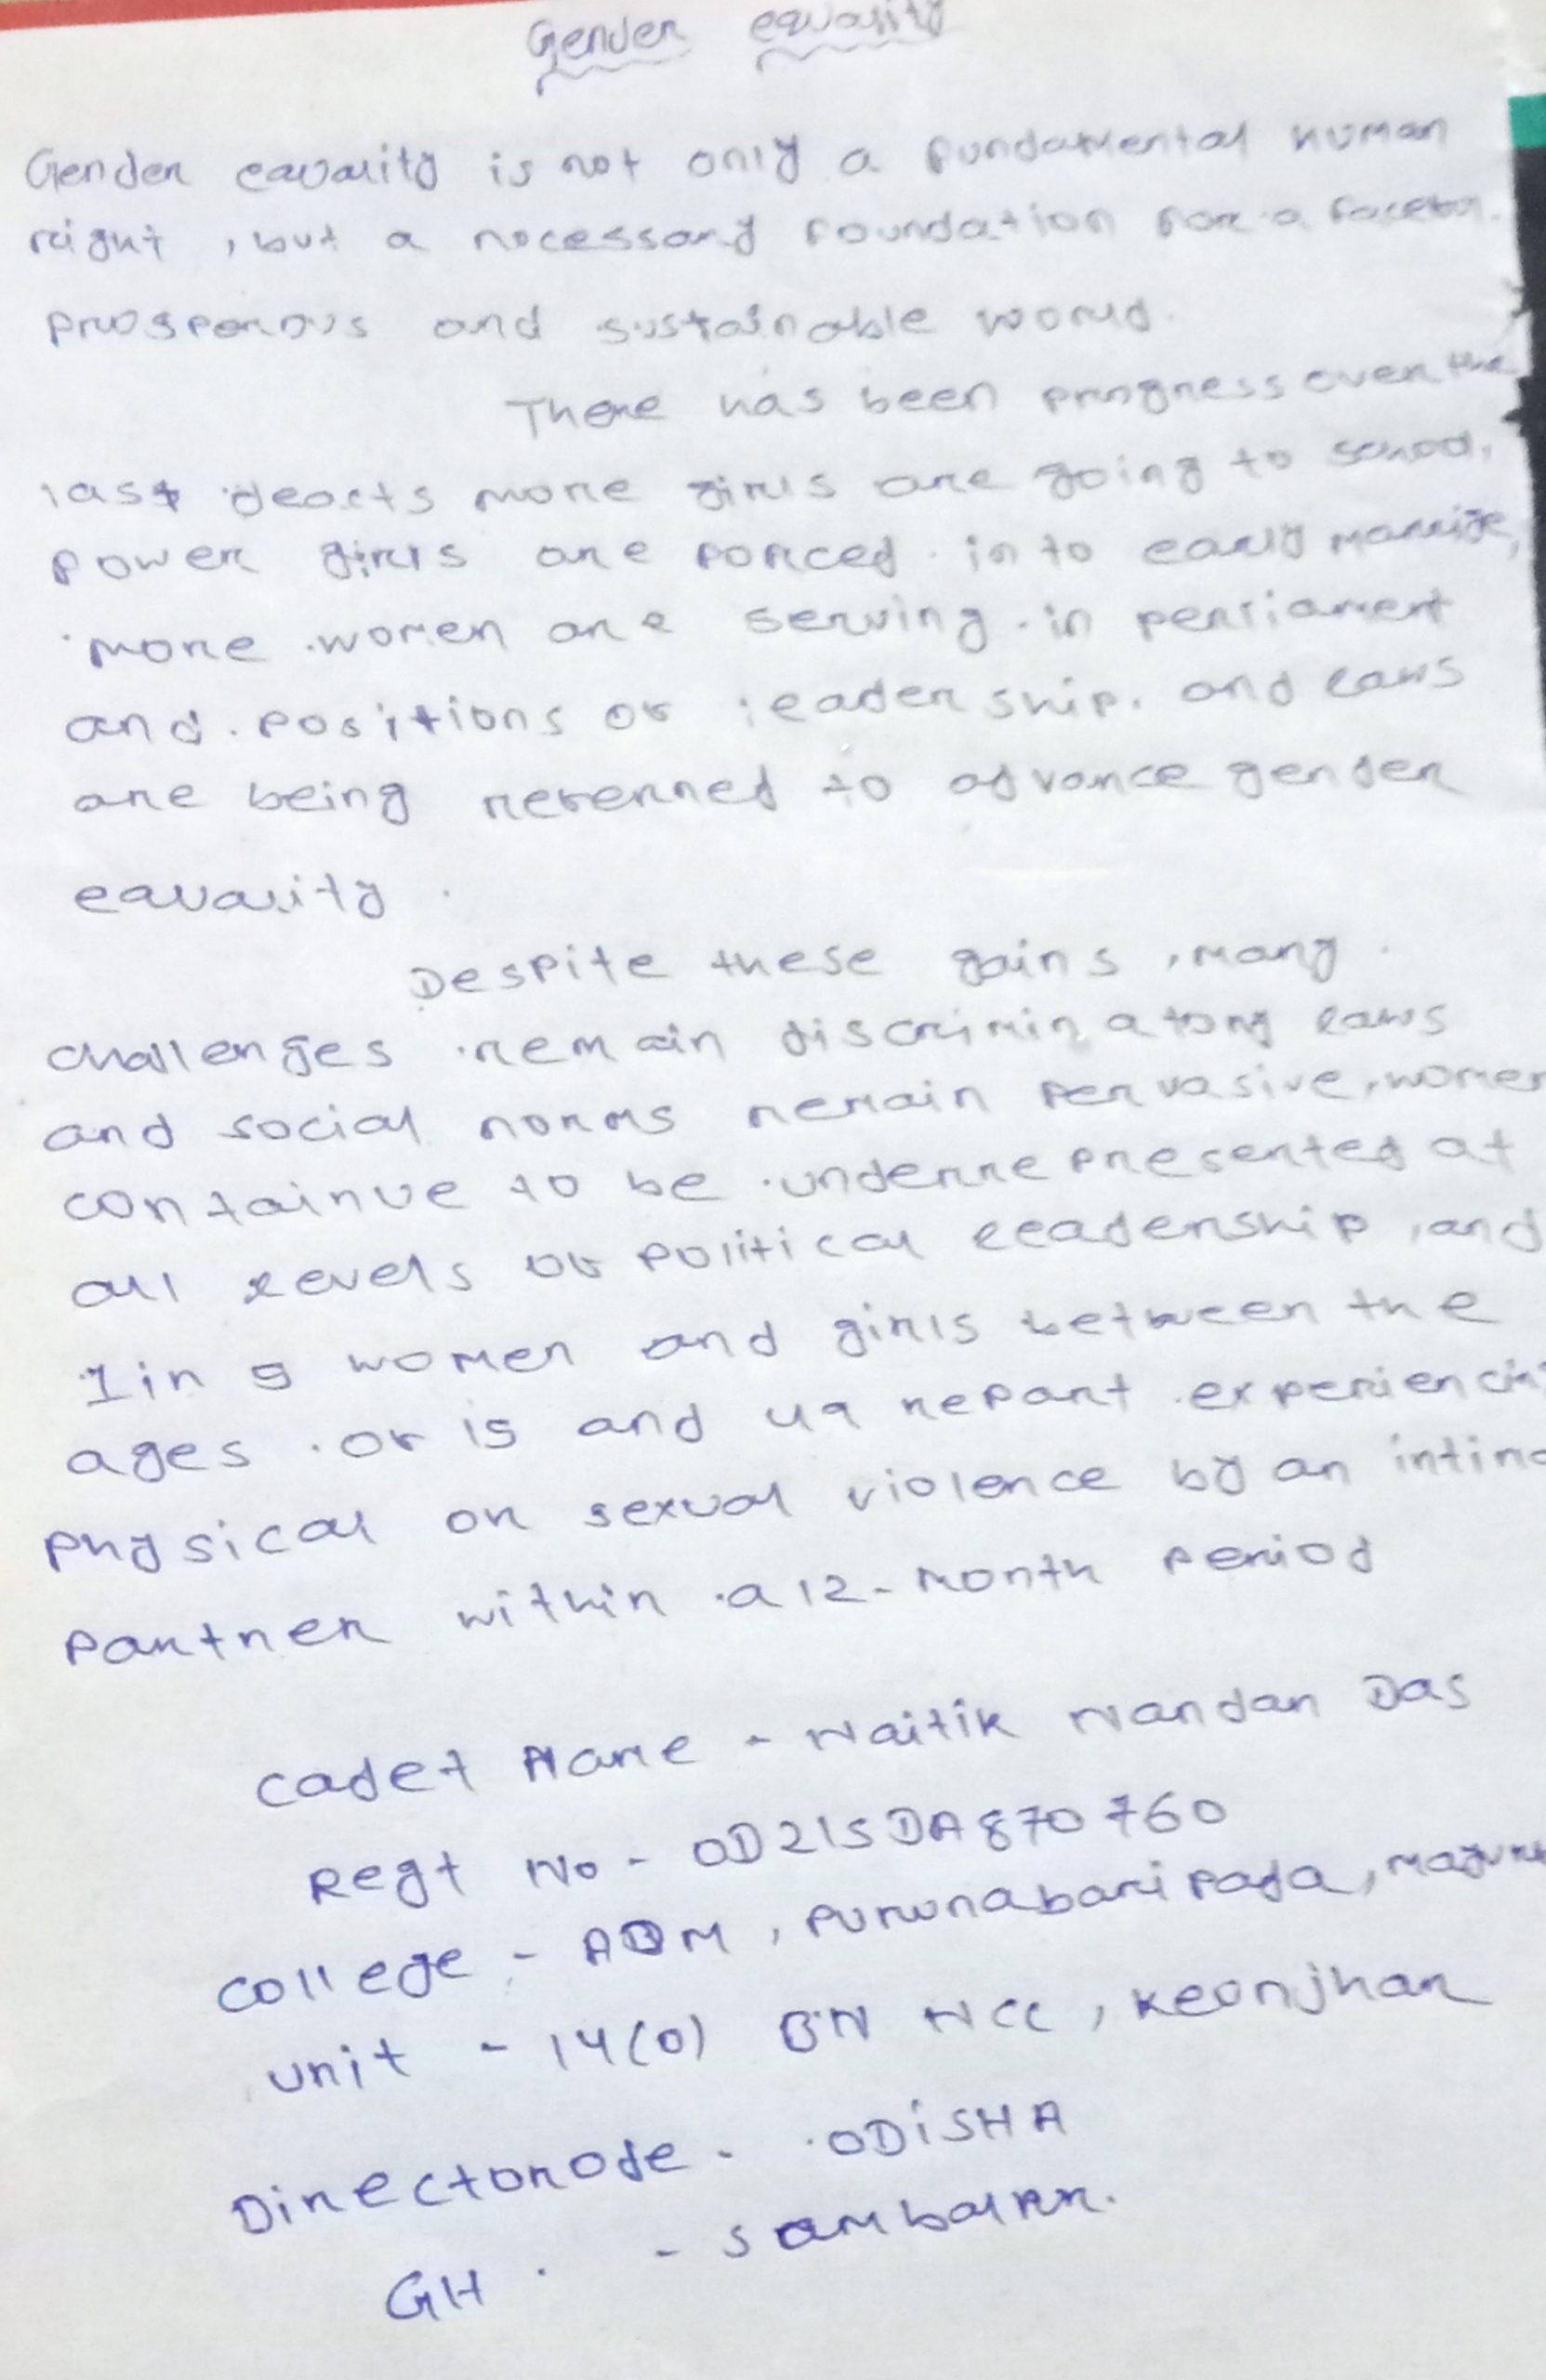 Gender equality
Gender equality is not only a fundamental human
right , but a necessary foundation for a
prosperous and sustainable world.
There has been progress over the
last more girls are going to school,
power girls are forced into early marrige,
more women are serving in perliament
and positions of leadership. and laws
are being referred to advance gender
equality .
Despite these gains , many
challenges remain discriminatory laws
and social norms remain pervasive, women
containue to be underrepresented at
all levels of political leadership , and
1 in 5 women and girls between the
ages of 15 and 49 repart
physical or sexual violence by an
partner within a 12-month period
Cadet Name - Naitik Nandan Das
Regt No - OD21SDA870760
College - , Purunabaripada,
Unit - 14(O) BN NCC, Keonjhar
Directorode - ODiSHA
GH -